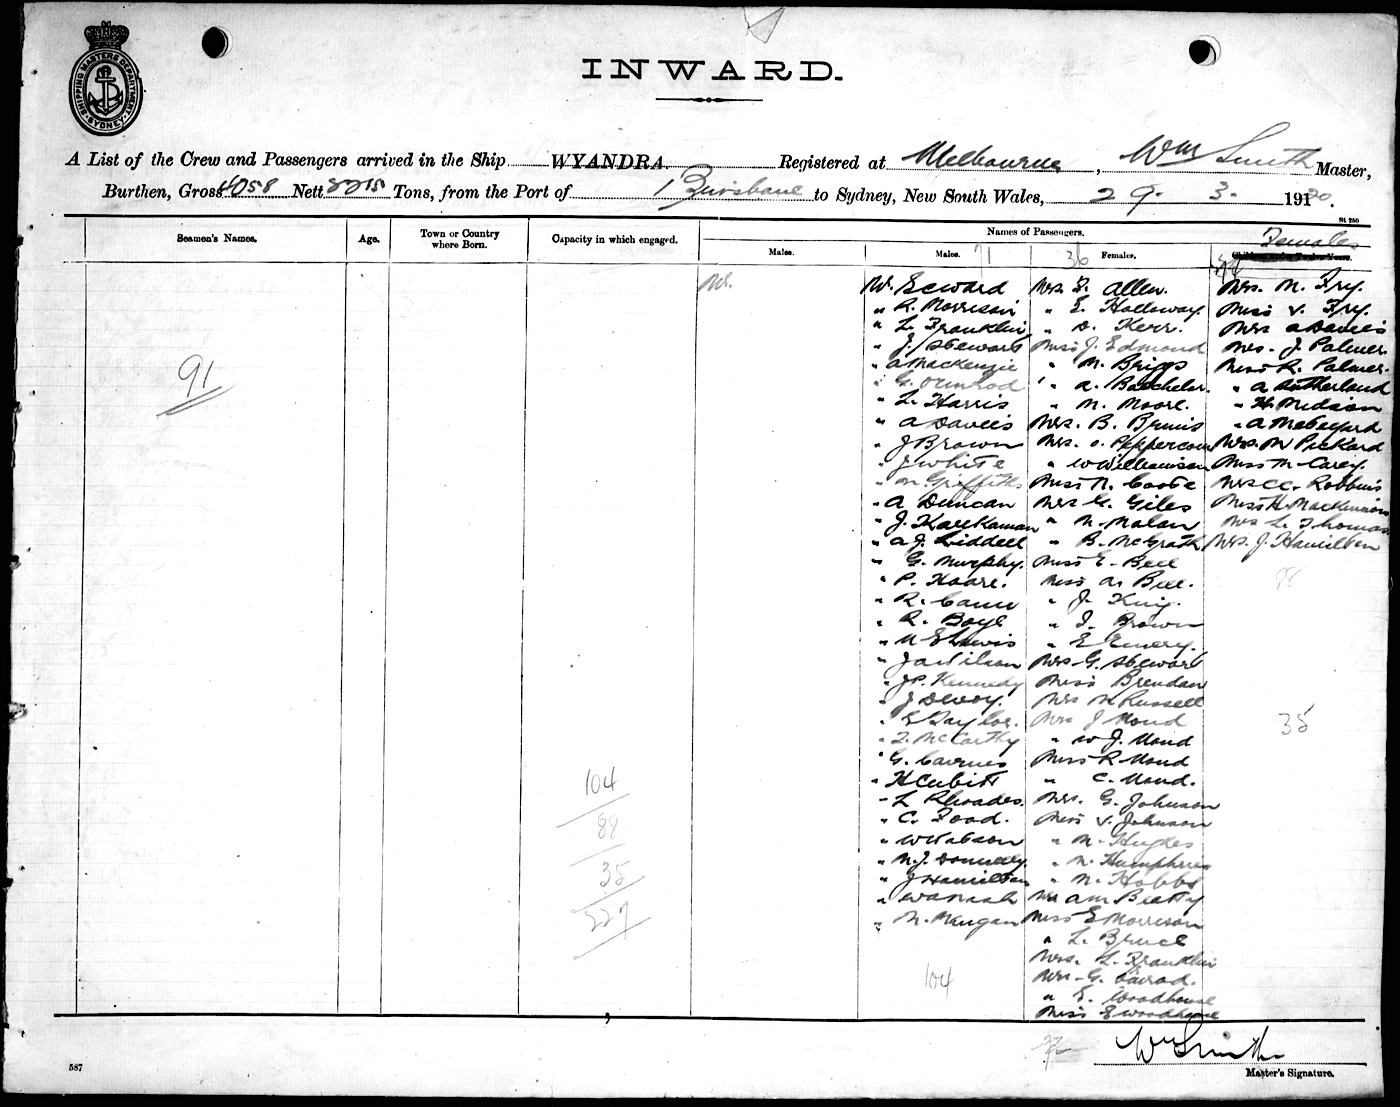 SHIPPING MASTERS DEPARTMENT SYDNEY
INWARD.
A List of the Crew and Passengers arrived in the Ship WYANDRA. Registered at Melbourne, Wm Smith Master,
Burthen, Gross 4058 Nett Tons, from the Port of Brisbane to Sydney, New South Wales, 29. 3. 1920.
St 250
Seamen's Names.
Age.
Town or Country where Born.
Capacity in which engaged.
Names of Passengers.
Males.
Males. 71
36 Females.
Females
Mr.
91
104
88
35
227
Mr.
" R. Morrison
" L. Franklin
" J. Stewart
" A Mackenzie
" G. Ormrod
" L. Harris
" A Davies
" J Brown
" J White
" M Griffiths
" A Duncan
" J.
" A J. Liddell
" G. Murphy.
" P. Hoare.
" R.
" R. Boyl
" Lewis
" J A Wilson
" J P. Kennedy
" J Devoy.
" Taylor.
" T. McCarthy
" G. Cairnes
" H Cubitt
" L Rhoades.
" C. Food.
" W Watson
" M. J. Donnelly.
" J Hamilton
" Nash
" M. Mangan
104
Mrs. Allen.
" E. Holloway.
" D. Kerr.
Miss J. Edmond
" M. Briggs
" A. Batchelor.
" M. Moore.
Mrs. B.
Mrs. O. Peppercorn
" W Williamson
Miss N. Coote
Mrs G. Giles
" M. Nolan
" B. McGrath
Miss E. Bell
Miss A. Bell.
" J. King.
" Brown
" E Emery.
Mrs. G. Stewart
Miss Brendan
Mrs M Russell
Mrs J Mond
" W J. Mond
Miss R Mond
" C. Mond.
Mrs. G. Johnson
Miss V. Johnson
" M. Hughes
" M. Humphries
" M. Hobbs
Mrs A M Beatty
Miss E Morrison
" L. Bruce
Mrs. L. Franklin
Mrs. G.
" E. Woodhouse
Miss E Woodhouse
Mrs. M. Fry.
Miss V. Fry.
Mrs A Davies
Mrs. J. Palmer.
Miss R. Palmer.
" A Sutherland
" H.
" A
Mrs. M Pickard
Miss M Carey.
Mrs C. Robbins
Miss H. Mackinnon
Mrs L. Thomas
Mrs. J. Hamilton
88
35
Wm Smith
Master's Signature.
587